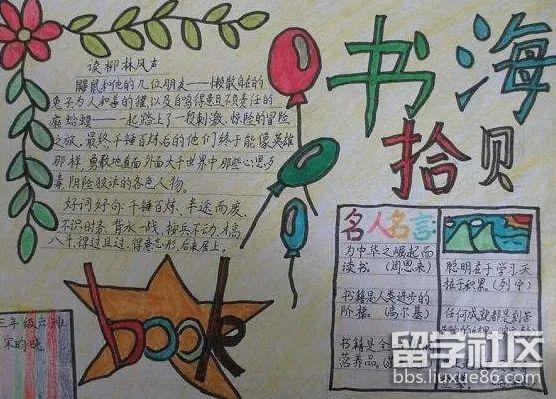 书海
拾贝
读柳林风声
鼹鼠和他的几位朋友——懒散自在的
兔子为人和善的獾以及自鸣得意且不负责任的
癞蛤蟆——一起踏上了一段刺激、惊险的冒险
之旅。最终千锤百炼后的他们终于能像英雄
那样,勇敢地直面外面大千世界中那些心思歹
毒,阴险狡诈的各色人物。
好词好句:千锤百炼、半途而废、
不识时务、背水一战、按兵不动、
八斗、得过且过、得意忘形、后来居上。
book
三年级六班
名人名言:
为中华之崛起而
读书。(周恩来)
书籍是人类进步的
阶梯。(高尔基)
书籍是全
营养品。
聪明在于学习天
在于积累(列宁)
任何成就都是刻苦
留学社区
bbs.liuxue86.com